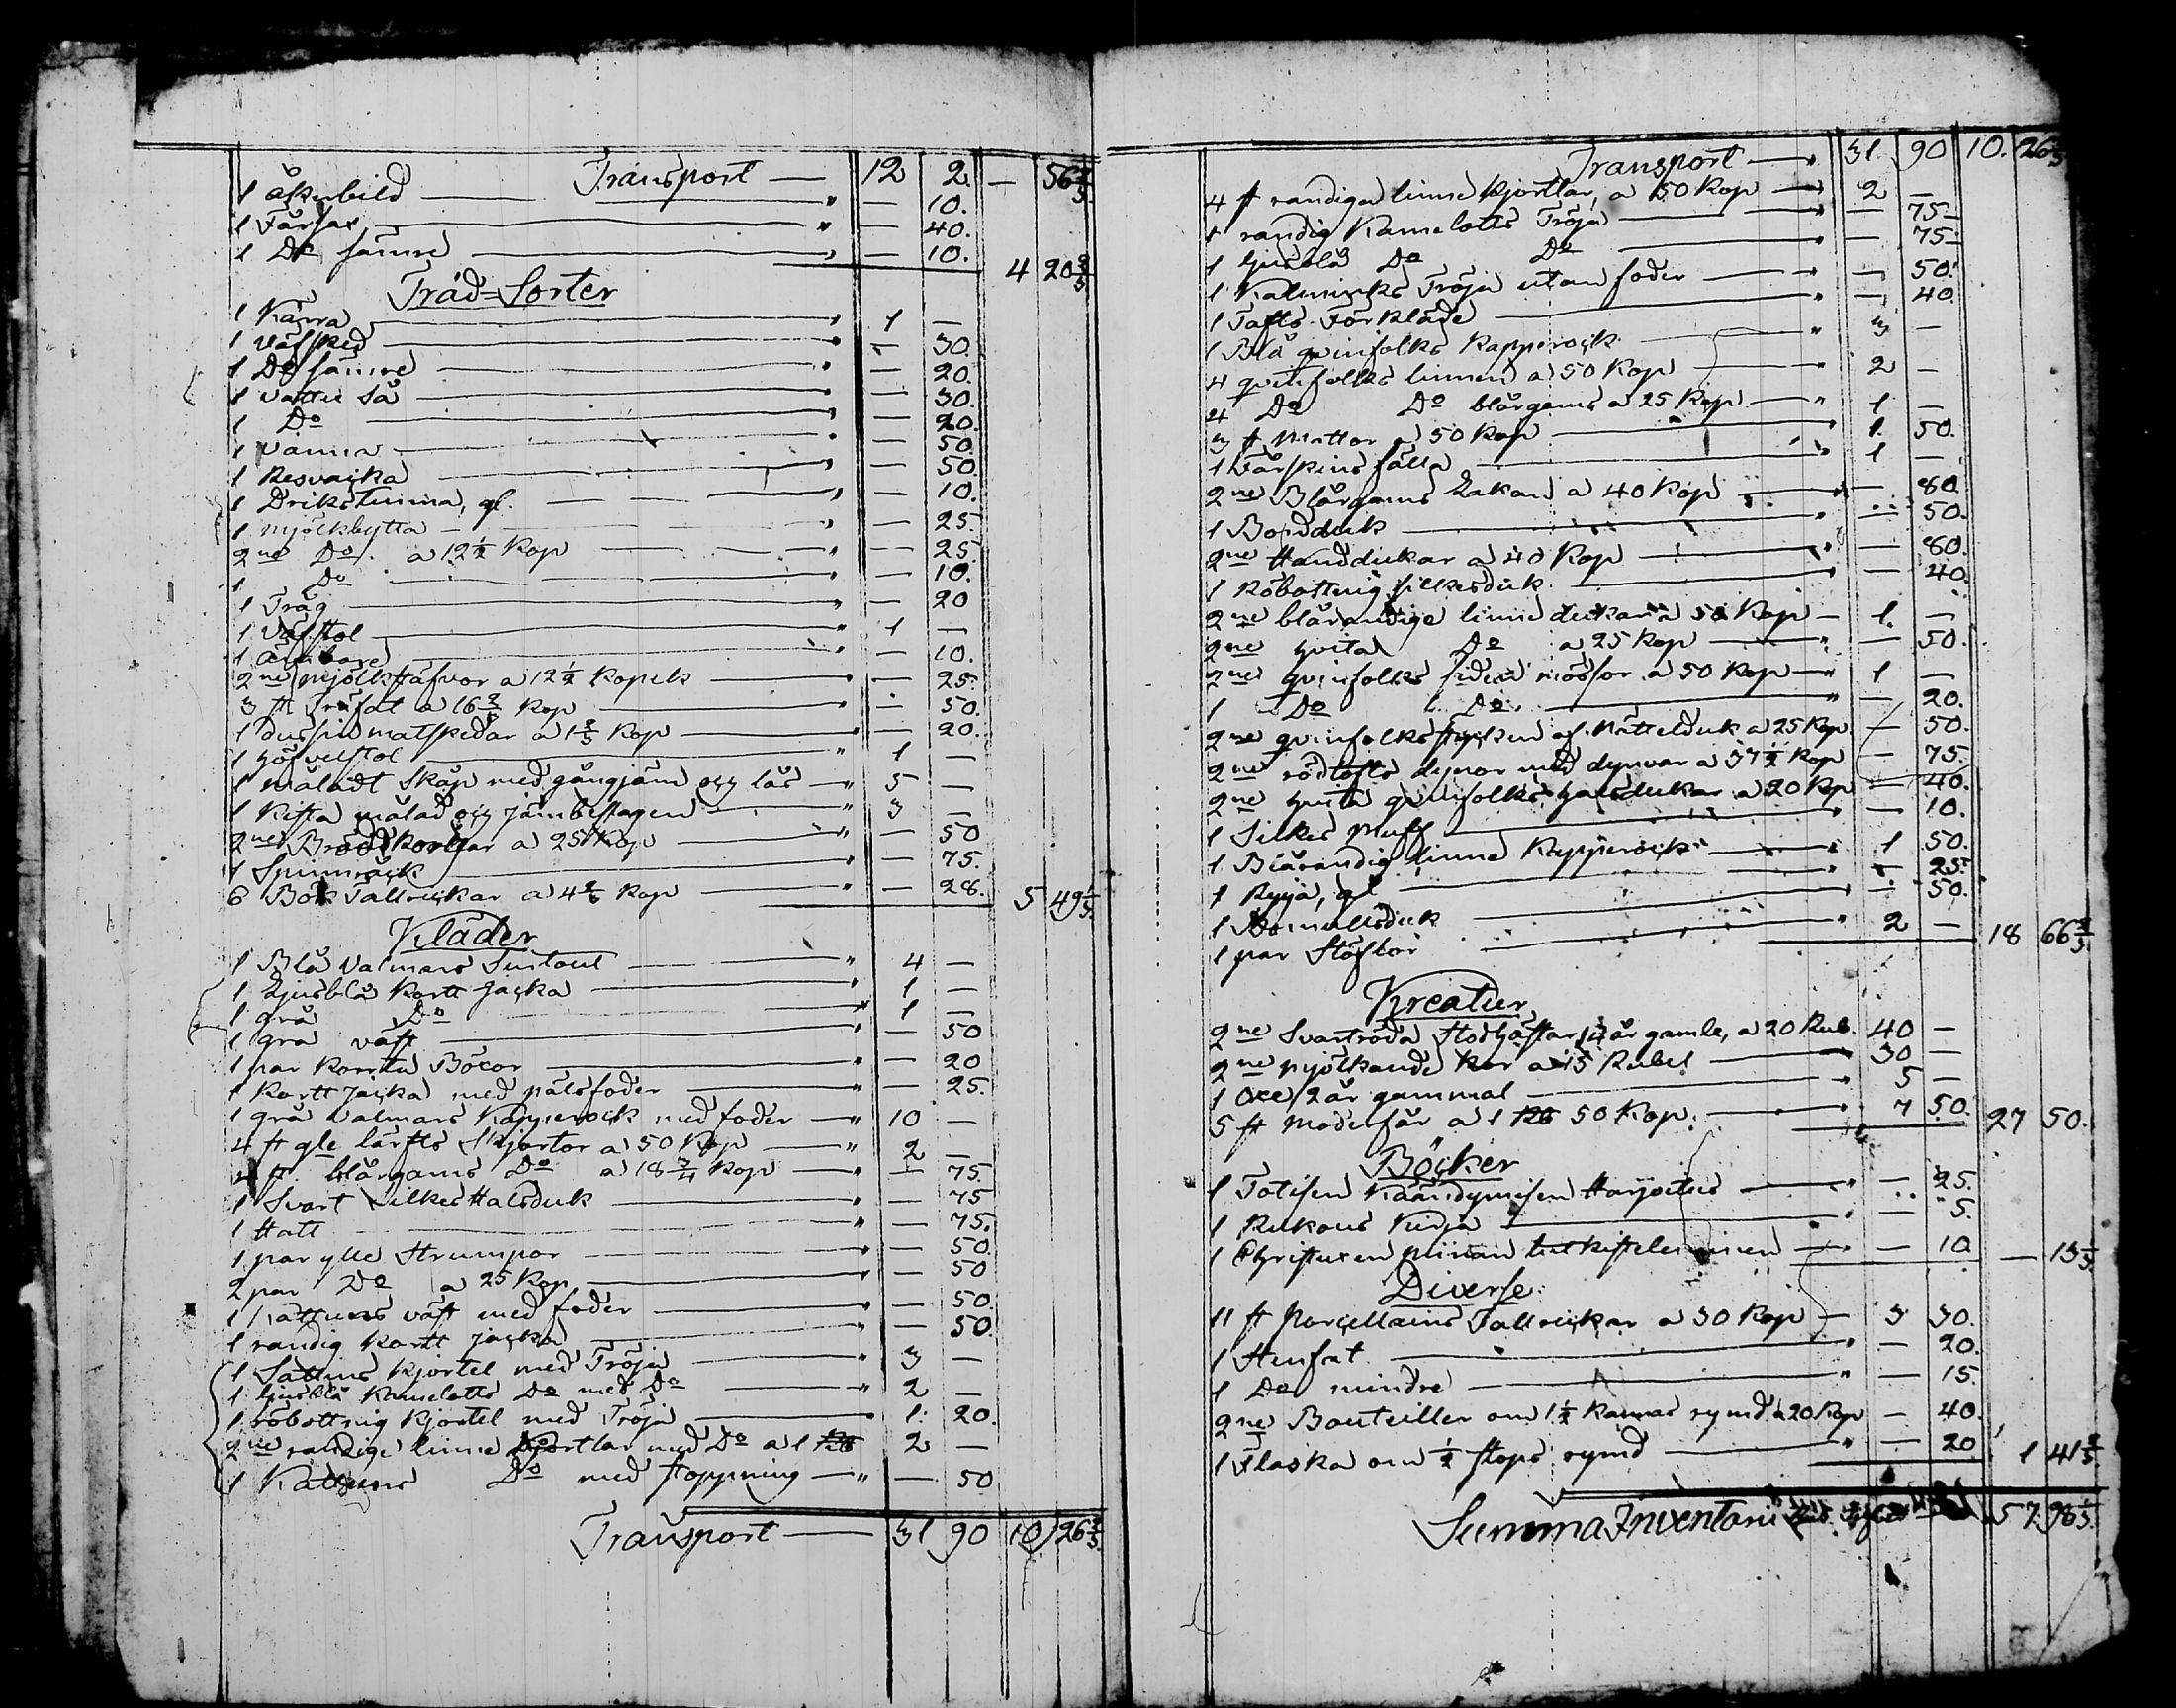 Transport — 12 2. — 56 2/5
1 åkerbild — " — 10.
1 Fårsax — " — 40.
1 Do sämre — " — 10. 4 20 2/5
Träd=Sorter
1 Kärra — " 1 —
1 Väfsked — " — 30.
1 Do sämre — " — 20.
1 Vattu Så — " — 30.
1 Do — " — 20.
1 Vanna — " — 50.
1 Resvaika — " — 50.
1 Drikstunna, gl. — " — 10.
1 mjölkbytta — " — 25.
2ne Do. a 12 1/2 Kop — " — 25.
1 Do — " — 10.
1 Tråg — " — 20
1 Väfstol — " 1 —
1 Ämbare — " — 10.
2ne mjölkstäfvor a 12 1/2 Kopek — " — 25.
3 st Träfat a 16 2/3 Kop — " — 50.
1 dussin matskedar a 1 2/3 Kop — " — 20.
1 höfvelstol — " 1 —
1 måladt Skåp med gångjärn och lås — " 5 —
1 Kista målad och järnbeslagen — " 3 —
2ne Brödkorgar a 25 Kop — " — 50
1 Spinnråck — " — 75.
6 Bok Tallrickar a 4 2/3 Kop — " — 28. 5 49 1/5.
Kläder
1 Blå Valmars Surtout — " 4 —
1 Ljusblå Kortt Jacka — " 1 —
1 grå Do — " 1 —
1 grå väst — " — 50
1 par korrta Böxor — " — 20
1 Kortt Jacka med pälsfoder — " — 25.
1 grå Valmars Kapprock med foder — " 10 —
4 st gle lärfts Skjortor a 50 Kop — " 2 —
4 st blårgarns Do a 18 3/4 Kop — " — 75.
1 Svart Silkes Halsduk — " — 75
1 Hatt — " — 75.
1 par ylle Strumpor — " — 50.
2 par Do a 25 Kop — " — 50
1 Kattuns väst med foder — " — 50.
1 randig kortt jacka — " — 50.
1 Sattins Kjortel med Tröja — " 3 —
1 ljusblå Kamelotts Do med Do — " 2 —
1 röbottnig Kjortel med Tröja — " 1. 20.
2ne randige linne Kjortlar med Do a 1 Rb 2 —
1 Kattuns Do med stoppning — " — 50
Transport — 31 90 10 26 2/5.
Transport — 31. 90 10. 26 2/5
4 st randiga linne Kjortlar, a 50 Kop — " 2 —
1 randig Kamelotts Tröja — " — 75
1 ljusblå Do Do — " — 75
1 Kalminks Tröja utan foder — " — 50.
1 Tafts Förkläde — " — 40.
1 Blå qvinfolks Kapprock — " 3 —
4 qvinfolks linnen a 50 Kop — " 2 —
4 Do Do blårgarns a 25 Kop — " 1 —
3 st Mattor a 50 Kop — " 1. 50.
1 Fårskins fälla — " 1 —
2ne Blårgarns Lakan a 40 Kop — " — 80.
1 Bordduk — " — 50.
2ne Handdukar a 40 Kop — " — 80.
1 Röbottnig silkesduk — " — 40.
2ne blårandige linne dukar a 50 Kop — 1. —
2ne hvita Do a 25 Kop — " — 50.
2ne qvinfolks siden mössor a 50 Kop — " 1 —
1 Do Do — " — 20.
2ne qvinfolks stycken af Nättelduk a 25 Kop — 50.
2ne rödlöfts dynor med dynvar a 37 1/2 Kop — 75.
2ne hvita qvinfolks halsdukar a 20 Kop — 40.
1 Silkes Muff — " — 10.
1 Blårandig linne Kapprock — " 1 50.
1 Ryja, gl — " — 25.
1 Bomullsduk — " — 50.
1 par Stöflor — " 2 — 18 66 2/5
Kreatur
2ne Svartröda Stodhästar, 14 år gamle, a 20 Rub. 40 —
2ne Mjölkande Kor a 15 Rubel — 30 —
1 Oxe 2 år gammal — " 5 —
5 st Moderfår a 1 Rb 50 Kop. — " 7 50. 27 50.
Böcker
1 Totisen Käändymisen Harjoitus — " — 25.
1 Rukous Kirja — " — 5.
1 Christuxen Piinan — — 10. — 13 1/5
Diverse
11 st Porcellains Tallrickar a 30 Kop — 3 30.
1 Stenfat — " — 20.
1 Do mindre — " — 15.
2ne Bouteiller om 1 1/2 Kannas rymd a 20 Kop — 40.
1 Flaska om 1/2 stops rymd — " — 20 1 41 2/5
Summa Inventarii 57. 96 1/5.